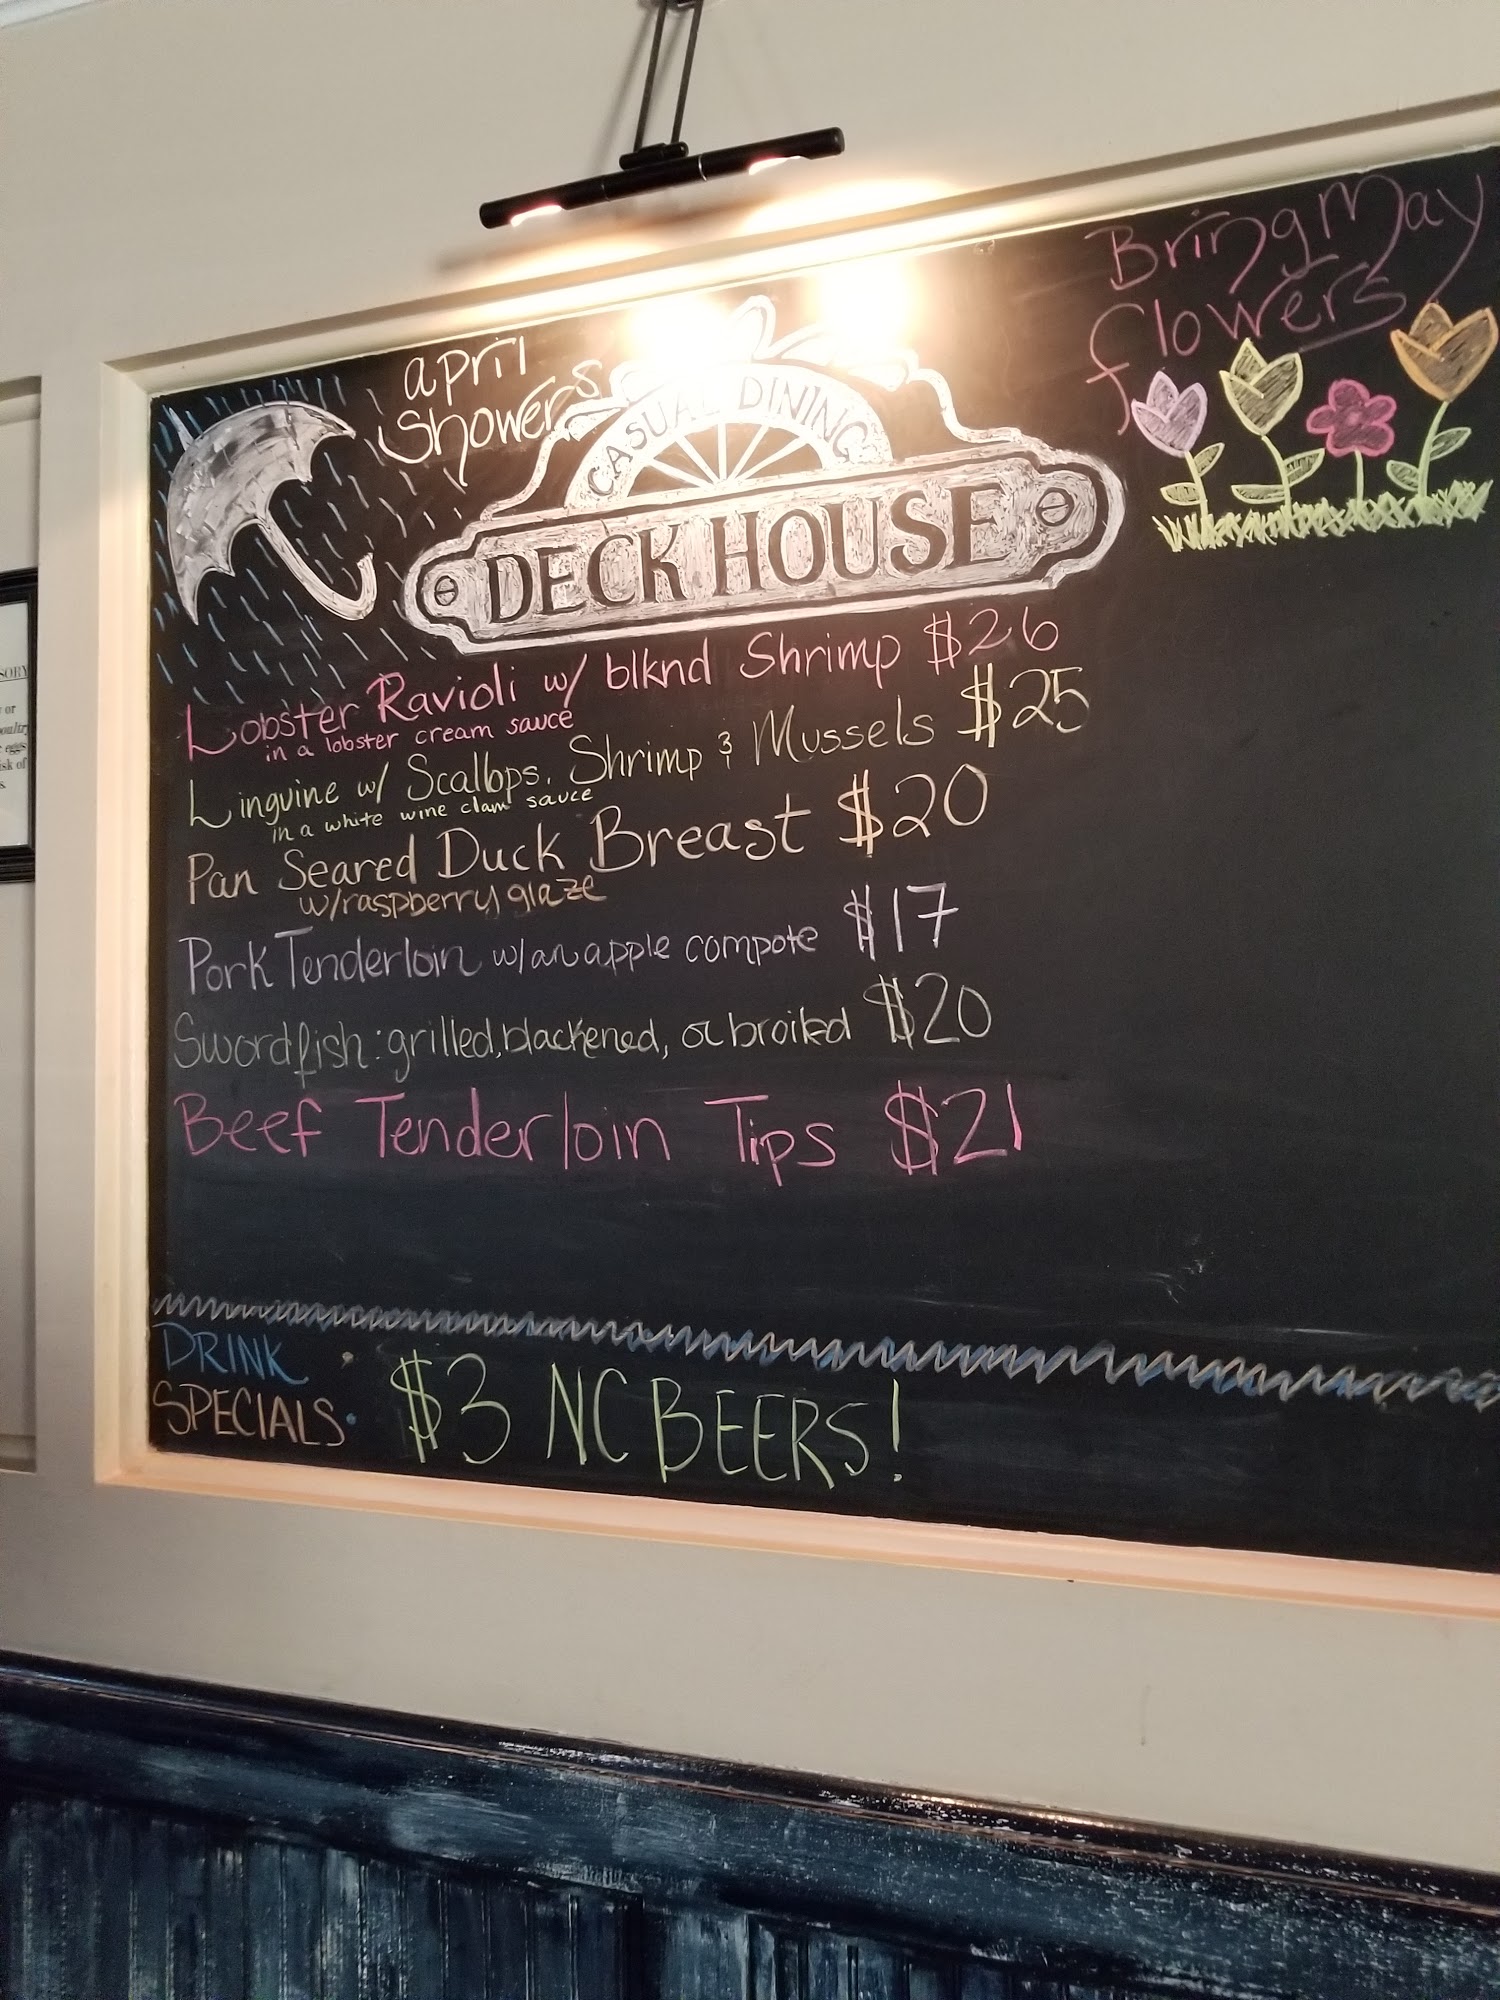 april
showers
Bring May
flowers
CASUAL DINING
DECK HOUSE
Lobster Ravioli w/ blknd Shrimp $26
in a lobster cream sauce
Linguine w/ Scallops, Shrimp & Mussels $25
in a white wine clam sauce
Pan Seared Duck Breast $20
w/raspberry glaze
Pork Tenderloin w/an apple compote $17
Swordfish: grilled, blackened, or broiled $20
Beef Tenderloin Tips $21
DRINK
SPECIALS:
$3 NC BEERS!
or
eggs
isk of